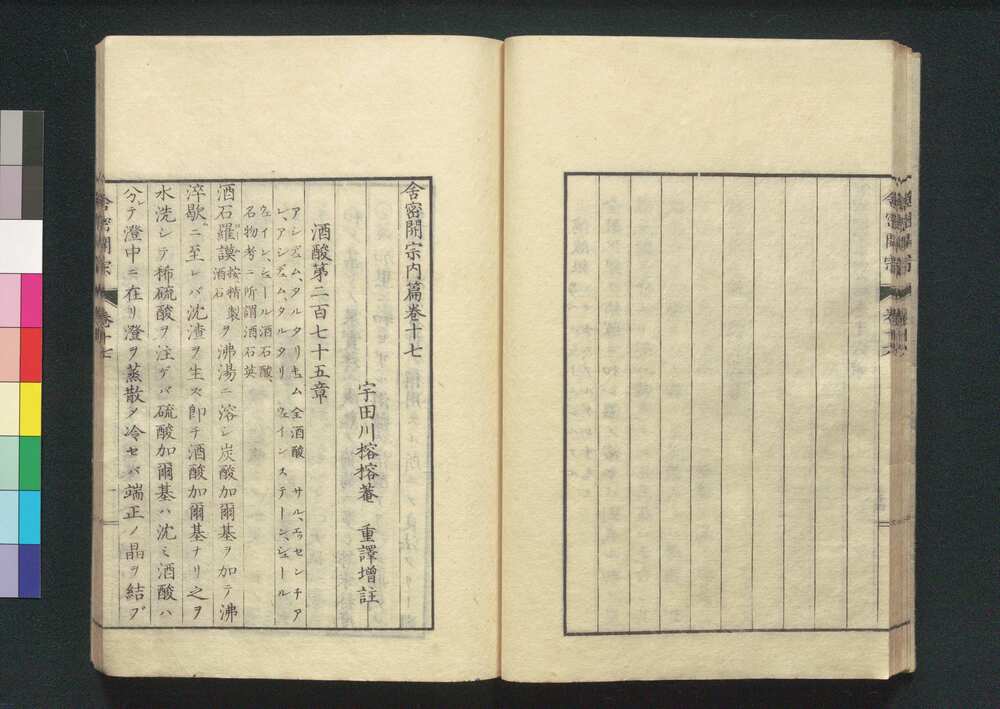 舍密開宗内篇卷十七
宇田川榕榕菴 重譯增註
酒酸第二百七十五章
アシヂュム、タルタリキュム 仝酒酸 サル、エッセンチア
レ、アシヂュム、タルタリ ウェインステーンジュール
ウェイン、ジュール 酒石酸、
名物考ニ所謂酒石英
酒石羅謨按精製酒石ヲ沸湯ニ溶シ炭酸加爾基ヲ加テ沸
淬歇ニ至レバ沈渣ヲ生ズ卽チ酒酸加爾基ナリ之ヲ
水洗シテ稀硫酸ヲ注ゲバ硫酸加爾基ハ沈ミ酒酸ハ
分レテ澄中ニ在リ澄ヲ蒸散シ冷セバ端正ノ晶ヲ結ブ
舍密開宗 卷十七